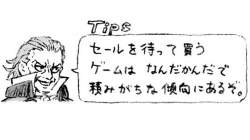 Tips
セールを待って買う
ゲームは なんだかんだで
積みがちな傾向にあるぞ。